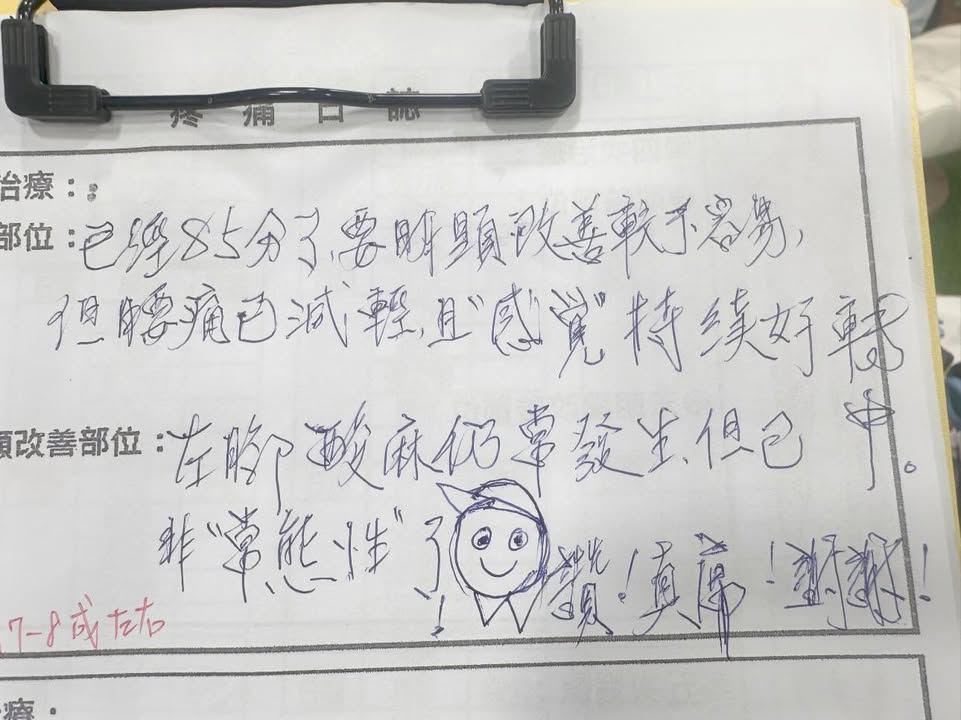 疼痛日誌
治療：
部位：已經85分了,要明顯改善較不容易,
但腰痛已減輕,且"感覺"持續好轉
中。
顯改善部位：左腳酸麻仍常發生,但已
非"常態性"了!
讚!真厲!謝謝!
7-8成左右
療：